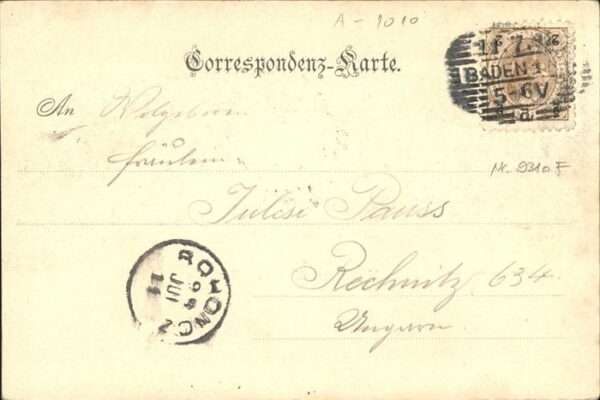 A-1010
Correspondenz-Karte.
11 7.
BADEN 1.
5-6V
a.
An Wolgeboren
Fräulein
Nr. 9310 F
Julcsi Pauss
Rechnitz 634
Ungarn
ROHONCZ
JUL
11